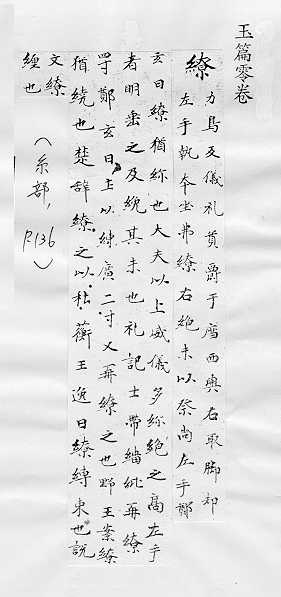 玉篇零卷
繚 力鳥反儀礼奠爵于薦西興右取脚却
左手執夲坐弗繚右絶末以祭尚左手鄭
玄曰繚猶紾也大夫以上威儀多紾絶之高左手
者明垂之及綩其末也礼記士帶緇紕再繚
四寸鄭玄曰上以練廣二寸又再繚之也野王案繚
猶繞也楚辞繚之以杜蘅王逸曰繚縛束也說
文繚
纏也 (糸部, P.136)